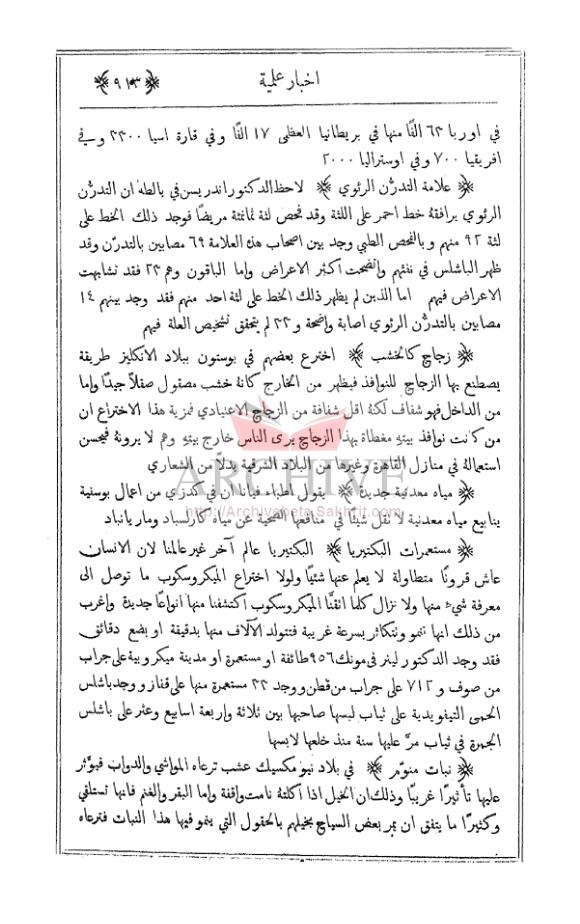 اخبار علمية ﴿ ٩١٣ ﴾
في اوربا ٦٣ الفًا منها في بريطانيا العظمى ١٧ الفًا وفي قارة اسيا ٢٣٠٠ وفي
افريقيا ٧٠٠ وفي اوستراليا ٢٠٠٠
﴿ علامة التدرُّن الرئوي ﴾ لاحظ الدكتور اندريسن في بالطه ان التدرُّن
الرئوي يرافقهُ خط احمر على اللثة وقد فحص لثة ثمانمئة مريضًا فوجد ذلك الخط على
لثة ٩٢ منهم وبالفحص الطبي وجد بين اصحاب هذه العلامة ٦٩ مصابين بالتدرّن وقد
ظهر الباشلس في نفثهم واتضحت اكثر الاعراض واما الباقون وهم ٢٣ فقد تشابهت
الاعراض فيهم اما الذين لم يظهر ذلك الخط على لثة احد منهم فقد وجد بينهم ١٤
مصابين بالتدرُّن الرئوي اصابة واضحة و ٢٢ لم يتحقق تشخيص العلة فيهم
﴿ زجاج كالخشب ﴾ اخترع بعضهم في بوستون ببلاد الانكليز طريقة
يصطنع بها الزجاج للنوافذ فيظهر من الخارج كانهُ خشب مصقول صقلاً جيدًا واما
من الداخل فهو شفاف لكنهُ اقل شفافة من الزجاج الاعتيادي فمزية هذا الاختراع ان
من كانت نوافذ بيتهِ مغطاة بهذا الزجاج يرى الناس خارج بيتهِ وهم لا يرونهُ فيحسن
استعمالهُ في منازل القاهرة وغيرها من البلاد الشرقية بدلاً من الشعاري
﴿ مياه معدنية جديدة ﴾ يقول اطباء فيانا ان في كدزي من اعمال بوسنية
ينابيع مياه معدنية لا تقل شيئًا في منافعها الصحية عن مياه كارلسباد وماريانباد
﴿ مستعمرات البكتيريا ﴾ البكتيريا عالم آخر غير عالمنا لان الانسان
عاش قرونًا متطاولة لا يعلم عنها شيئًا ولولا اختراع الميكروسكوب ما توصل الى
معرفة شيء منها ولا نزال كلما اتقنَّا الميكروسكوب اكتشفنا منها انواعًا جديدة واغرب
من ذلك انها تنمو وتتكاثر بسرعة غريبة فتتولد الآلاف منها بدقيقة او بضع دقائق
فقد وجد الدكتور لينر في مونك ٩٥٦ طائفة او مستعمرة او مدينة ميكروبية على جراب
من صوف و ٧١٢ على جراب من قطن ووجد ٣٣ مستعمرة منها على قفاز ووجد باشلس
الحمى التيفويدية على ثياب لبسها صاحبها بين ثلاثة واربعة اسابيع وعثر على باشلس
الجمرة في ثياب مرَّ عليها سنة منذ خلعها لابسها
﴿ نبات منوّم ﴾ في بلاد نيو مكسيك عشب ترعاه المواشي والدواب فيؤثر
عليها تأثيرًا غريبًا وذلك ان الخيل اذا اكلتهُ نامت واقفة واما البقر والغنم فانها تستلقي
وكثيرًا ما يتفق ان يمر بعض السياح بخيلهم بالحقول التي ينمو فيها هذا النبات فترعاه
ARCHIVE
http://Archivebeta.Sakhrit.com